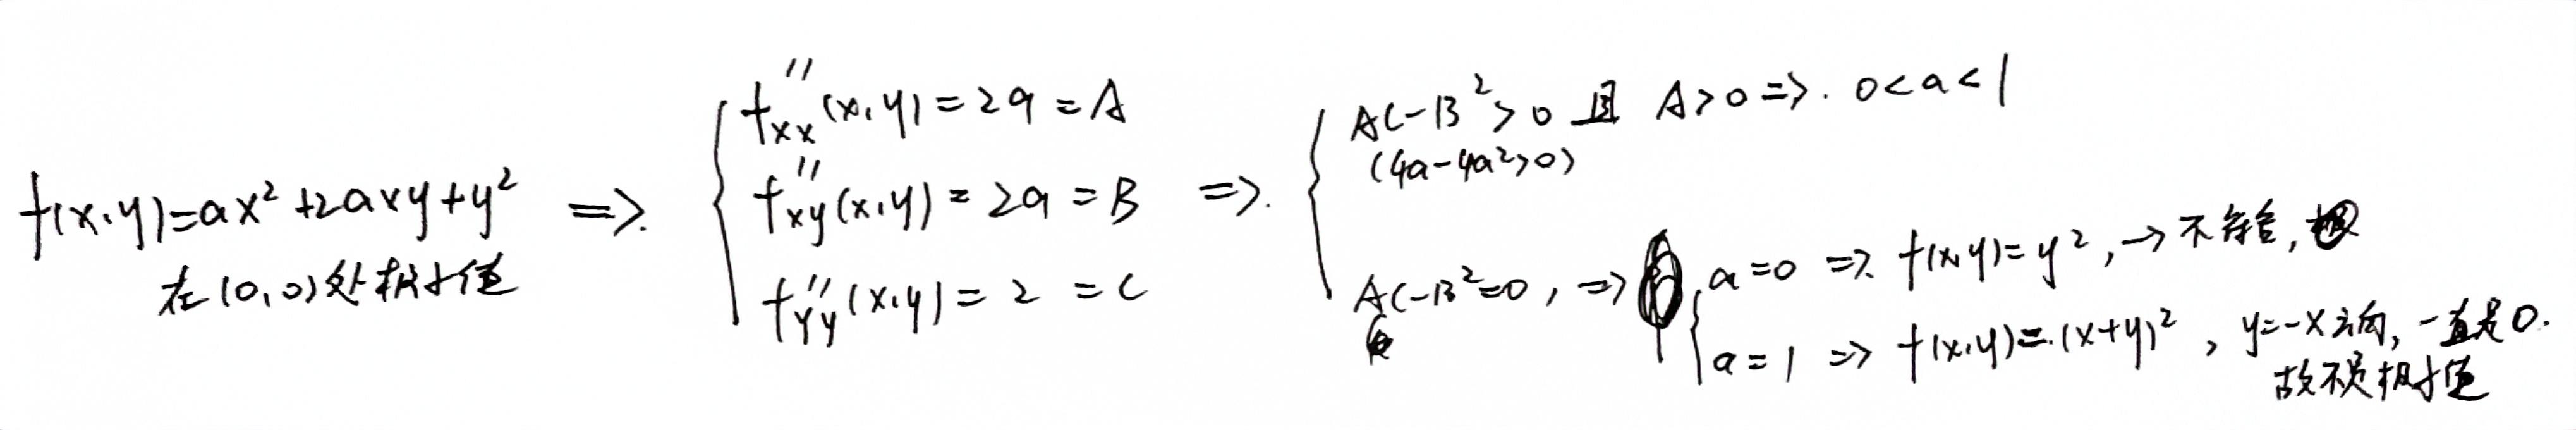 f(x,y)=ax²+2axy+y² =>
在(0,0)处极小值
f''xx(x,y)=2a=A
f''xy(x,y)=2a=B =>
f''yy(x,y)=2=C
AC-B²>0 且 A>0 => 0<a<1
(4a-4a²>0)
AC-B²=0, =>
a=0 => f(x,y)=y², → 不符合,
a=1 => f(x,y)=(x+y)², y=-x方向, 一直是0.
故不是极小值